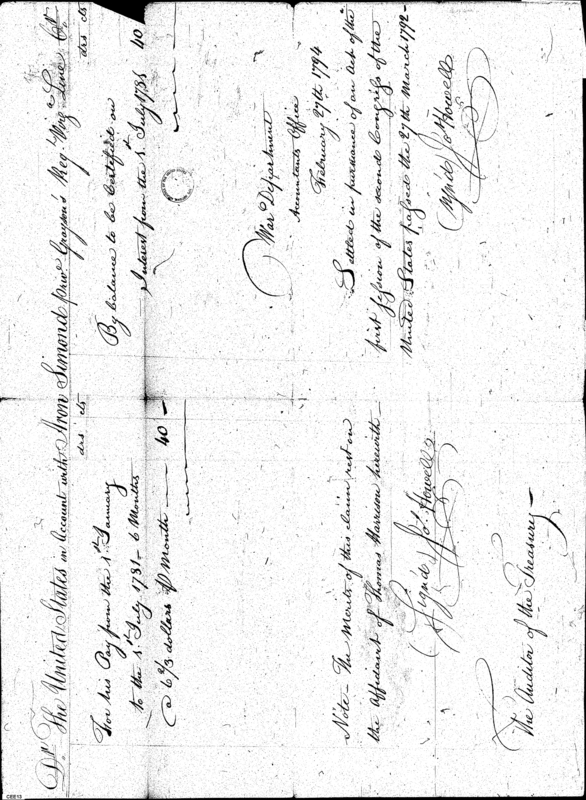 Dr. The United States in Account with Aron Simond priv.e Grayson's Reg. Virg.a Line Cr.
drs cts
For his Pay from the 1st January
to the 1st July 1781 - 6 Months
@ 6 2/3 dollars ⅌ Month — 40 —
Note - The Merits of this claim rest on
the Affidavit of Thomas Harrison herewith -
Signd Jo.s Howell
The Auditor of the Treasury -
drs cts
By balance to be Certified on
Interest from the 1st July 1781 40
War Department
Accountants Office
February 27th 1794
Settled in pursuance of an Act of the
first session of the second Congress of the
United States passed the 27th March 1792 -
Signd Jos. Howell
CEE13